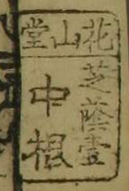 花山堂
芝蔭壹
中根